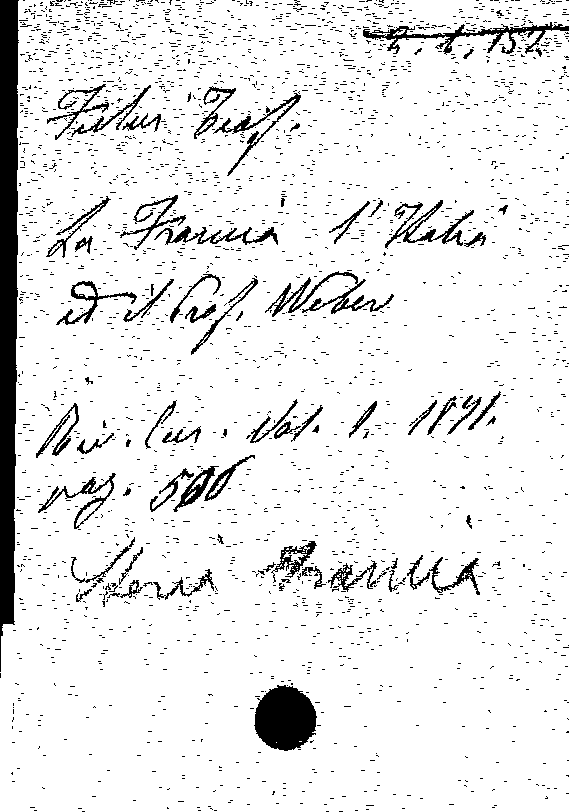 2. 6. 152
La Francia l'Italia
ed il Prof. Weber
Riv. Eur. Vol. 1. 1871.
pag. 506
Storia Francia